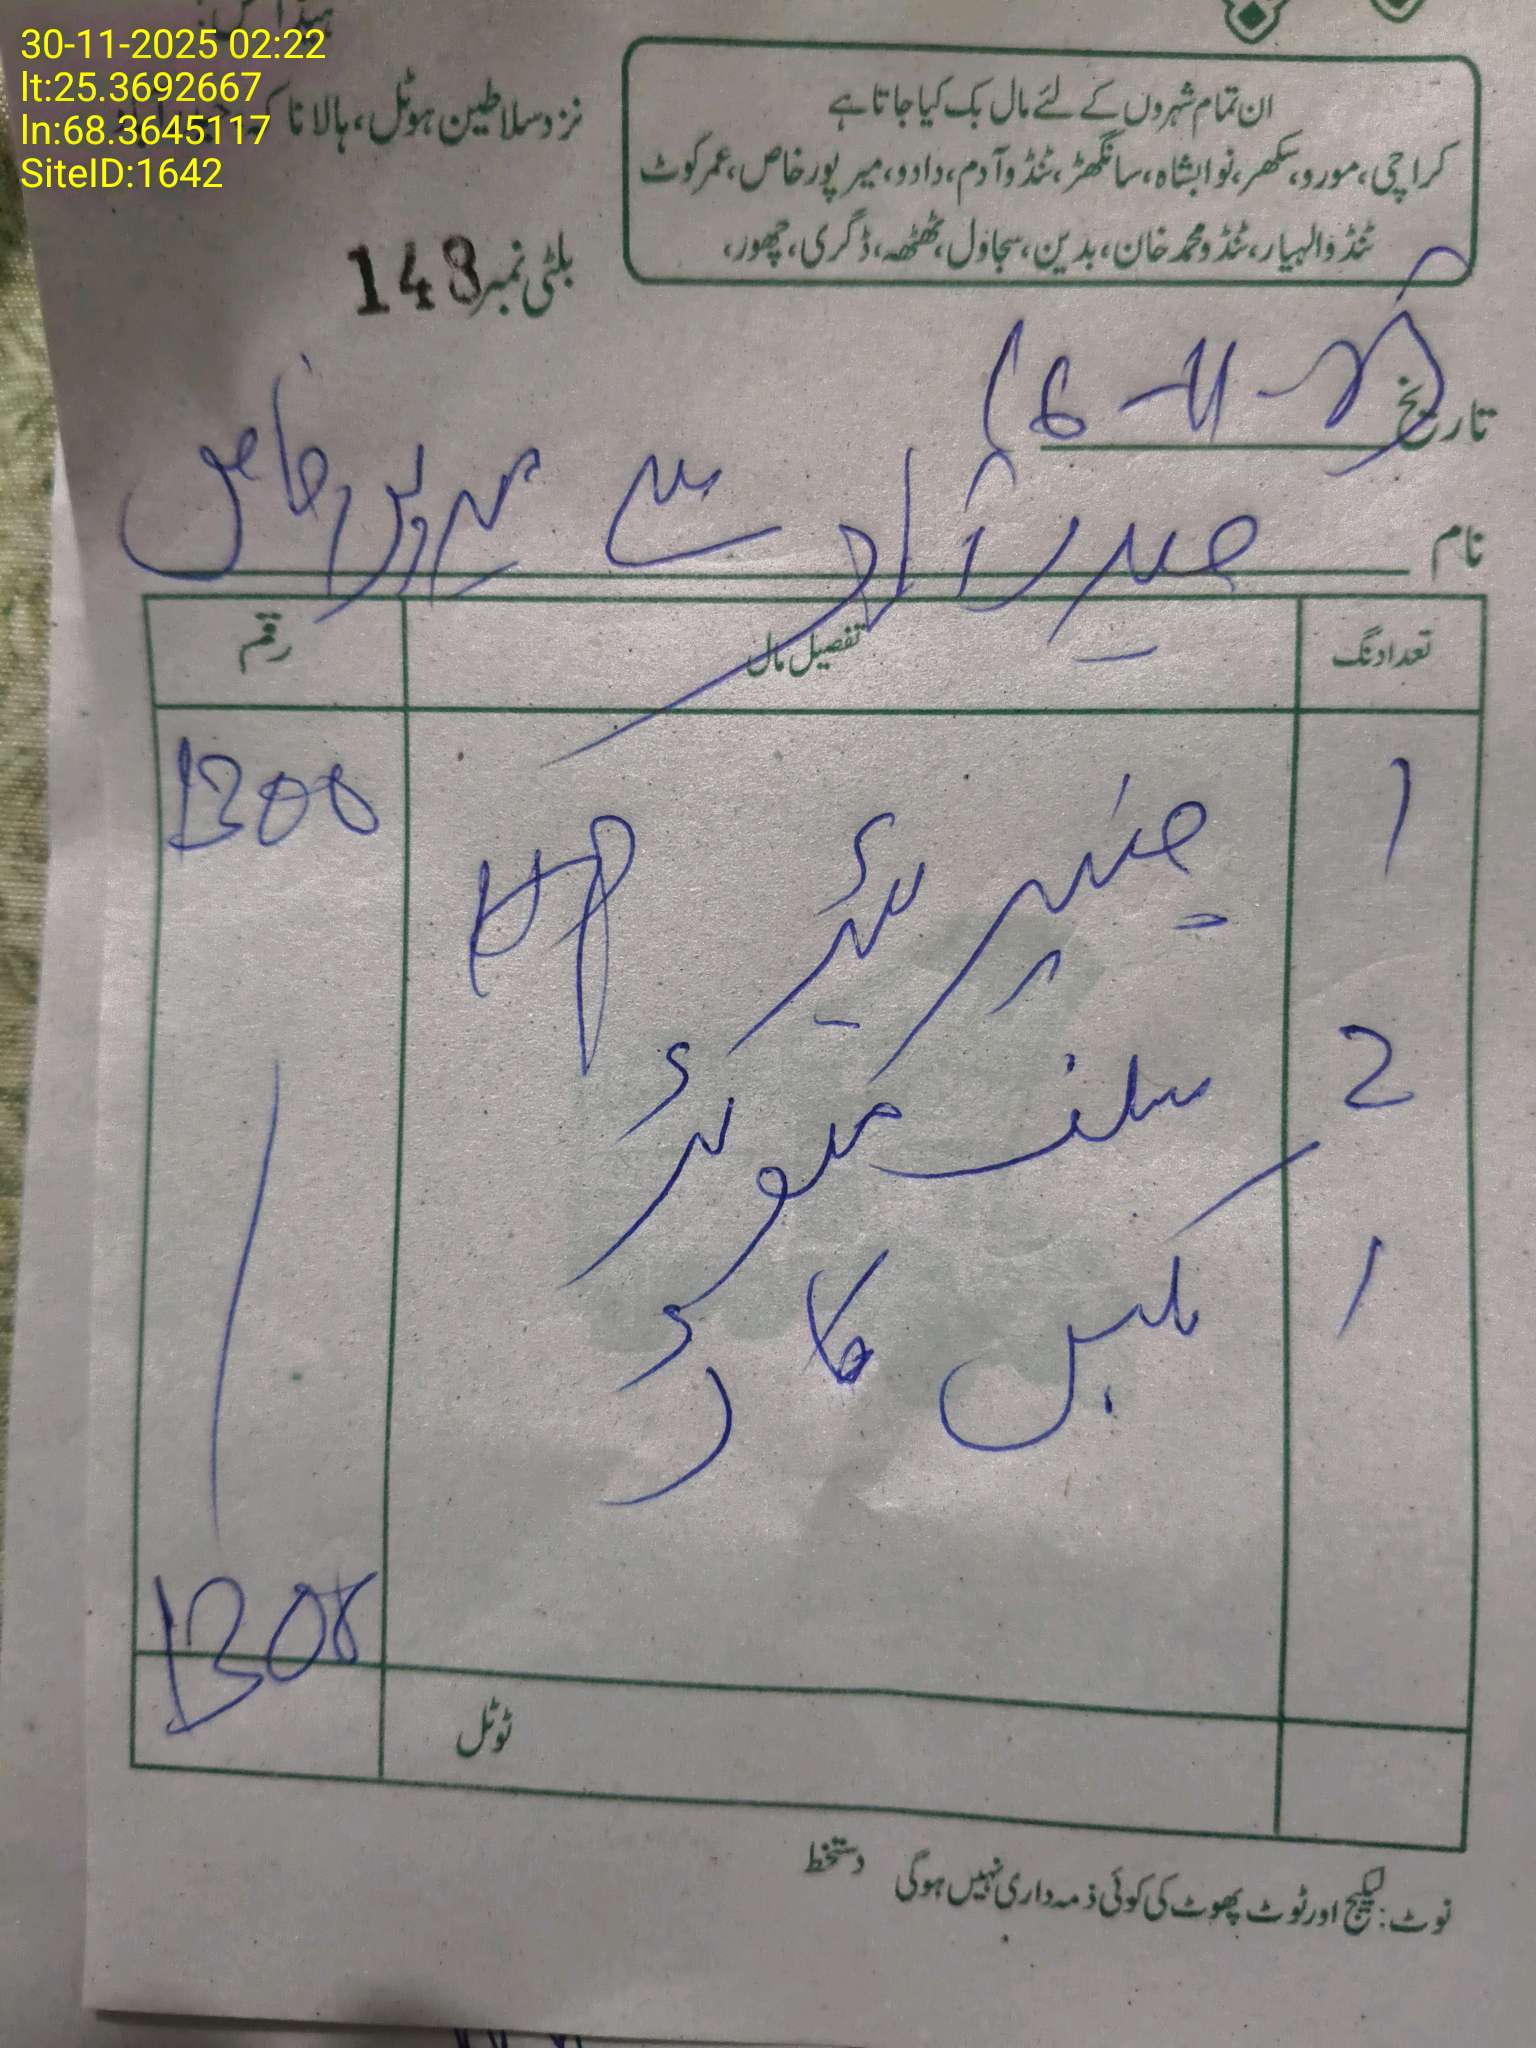 30-11-2025 02:22
lt:25.3692667
ln:68.3645117
SiteID:1642
نزد سلاطین ہوٹل، ہالا ناکہ
ان تمام شہروں کے لئے مال بک کیا جاتا ہے
کراچی، مورو، سکھر، نوابشاہ، سانگھڑ، ٹنڈوآدم، دادو، میرپورخاص، عمرکوٹ
ٹنڈوالہیار، ٹنڈومحمدخان، بدین، سجاول، ٹھٹھہ، ڈگری، چھور،
بلٹی نمبر 148
تاریخ
نام حیدرآباد سے میرپورخاص
تعداد نگ تفصیل مال رقم
1 جنریٹر HP 1300
2 سلف موٹر
1 کا
1300
ٹوٹل
نوٹ: لیکیج اور ٹوٹ پھوٹ کی کوئی ذمہ داری نہیں ہوگی دستخط